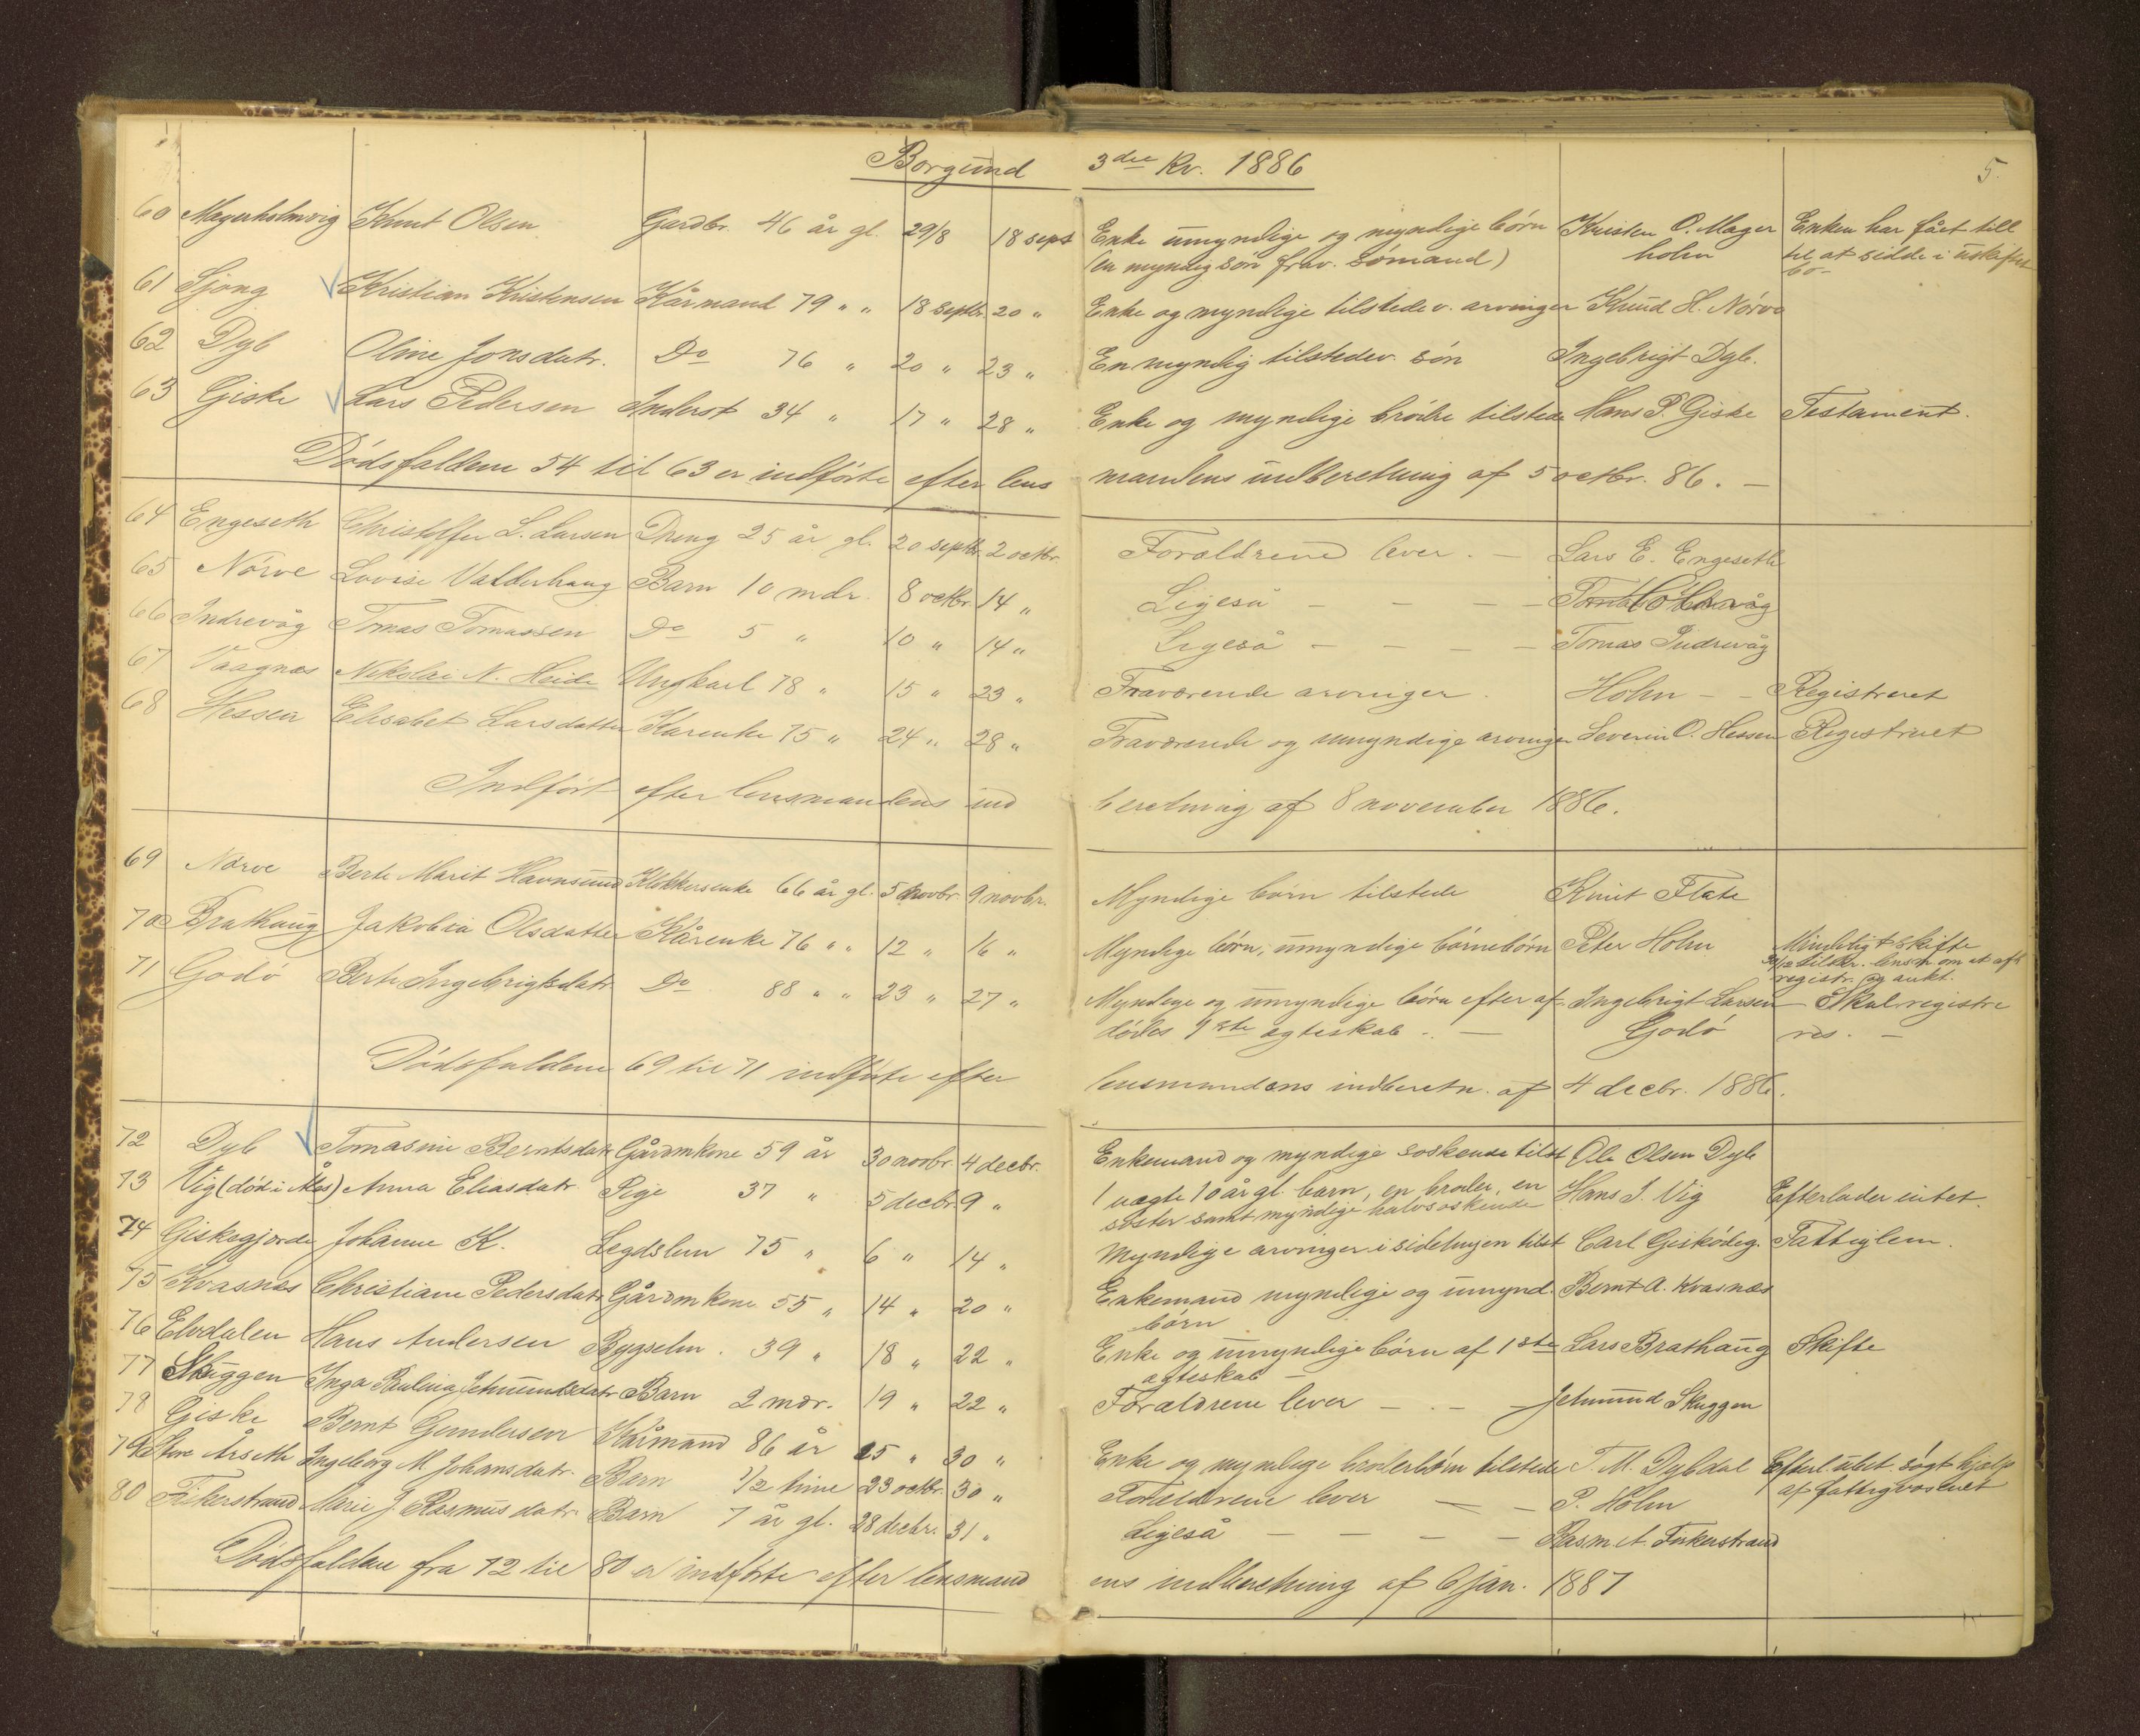 Borgund 3die Kv. 1886
5.
60 Magerholmvig Knut Olsen Gardbr. 46 år gl. 29/8 18 sept Enke umyndige og myndige börn Kristen O. Mager Enken har fået till
(en myndig sön frav. sömand) holm til at sidde i uskiftet
bo-
61 Sjong Kristian Kristensen Kårmand 79 " " 18 septbr. 20 " Enke og myndige tilstede v. arvinger Knud H. Nörve
62 Dyb Oline Jonsdatr. Do 76 " 20 " 23 " En myndig tilstedev. sön Ingebrigt Dyb.
63 Giske Lars Pedersen Inderst 34 " 17 " 28 " Enke og myndige brödre tilstede Hans P. Giske Testament.
Dödsfaldene 54 til 63 er indförte efter lens mandens indberetning af 5 octbr. 86. —
64 Engeseth Christoffer L. Larsen Dreng 25 år gl. 20 septbr. 2 octbr. Forældrene lever. — Lars E. Engeseth
65 Nörve Lovise Valderhaug Barn 10 mdr. 8 octbr. 14 " Ligeså — — — —
66 Indrevåg Tomas Tomassen Do 5 " 10 " 14 " Ligeså — — — — Tomas Indrevåg
67 Vaagnæs Nikolai N. Heide Ungkarl 78 " 15 " 23 " Fraværende arvinger. Holm — — Registreret
68 Hessen Elisabet Larsdatter Karenke 75 " 24 " 28 " Fraværende og umyndige arvinger Severin O. Hessen Registreret
Indfört efter lensmandens ind beretning af 8 november 1886.
69 Nørve Berte Marit Havnsund Klokkersenke 66 år gl. 5 novbr. 9 novbr. Myndige börn tilstede Knut Flate
70 Brathaug Jakobia Olsdatter Kårenke 76 " " 12 " 16 " Myndige börn, umyndige börnebörn Peter Holm Mindeligt skifte
30/12 tilskr. lensm om at afh
registr. og aukt.
71 Godö Berte Ingebrigtsdatr Do 88 " " 23 " 27 " Myndige og umyndige börn efter af- Ingebrigt Larsen Skal registre
dödes 1ste ægteskab. — Godö res. —
Dödsfaldene 69 til 71 indförte efter lensmandens indberetn. af 4 decbr. 1886.
72 Dyb Tomasine Berntsdatr Gårdmkone 59 år 30 novbr. 4 decbr. Enkemand og myndige söskende tilst Ole Olsen Dyb
73 Vig (död i Ales) Anna Eliasdatr. Pige 37 " 5 decbr. 9 " 1 uægte 10 år gl. barn, en broder, en Hans J. Vig Efterlader intet.
söster samt myndige halvsöskende
74 Giskegjerde Johanne K. Legdslem 75 " 6 " 14 " Myndige arvinger i sidelinjen tilst Carl Gesködeg. Fattiglem.
75 Kvasnæs Christiane Pedersdatr Gårdmkone 55 " 14 " 20 " Enkemand myndige og umynd. Bernt A. Kvasnæs
börn
76 Elvdalen Hans Andersen Bygselm. 39 " 18 " 22 " Enke og umyndige börn af 1ste Lars Brathaug Skifte
ægteskab —
77 Skuggen Inga Paulina Jetmundsdatr Barn 2 mdr. 19 " 22 " Forældrene lever — . — — Jetmund Skuggen
78 Giske Bernt Gundersen Kårmand 86 år 25 " 30 " Enke og myndige broderbörn tilstede T. M. Dybdal Efterl. intet. sögt hjælp
af fattigvæsenet
79 Store Årseth Ingeborg M. Johansdatr. Barn 1/2 time 23 octbr. 30 " Forældrene lever — — P. Holm
80 Fiskerstrand Marie J. Rasmusdatr. Barn 7 år gl. 28 decbr. 31 " Ligeså — — — — Rasm. A. Fiskerstrand
Dödsfaldene fra 72 til 80 er indförte efter lensmand ens indberetning af 6 jan. 1887